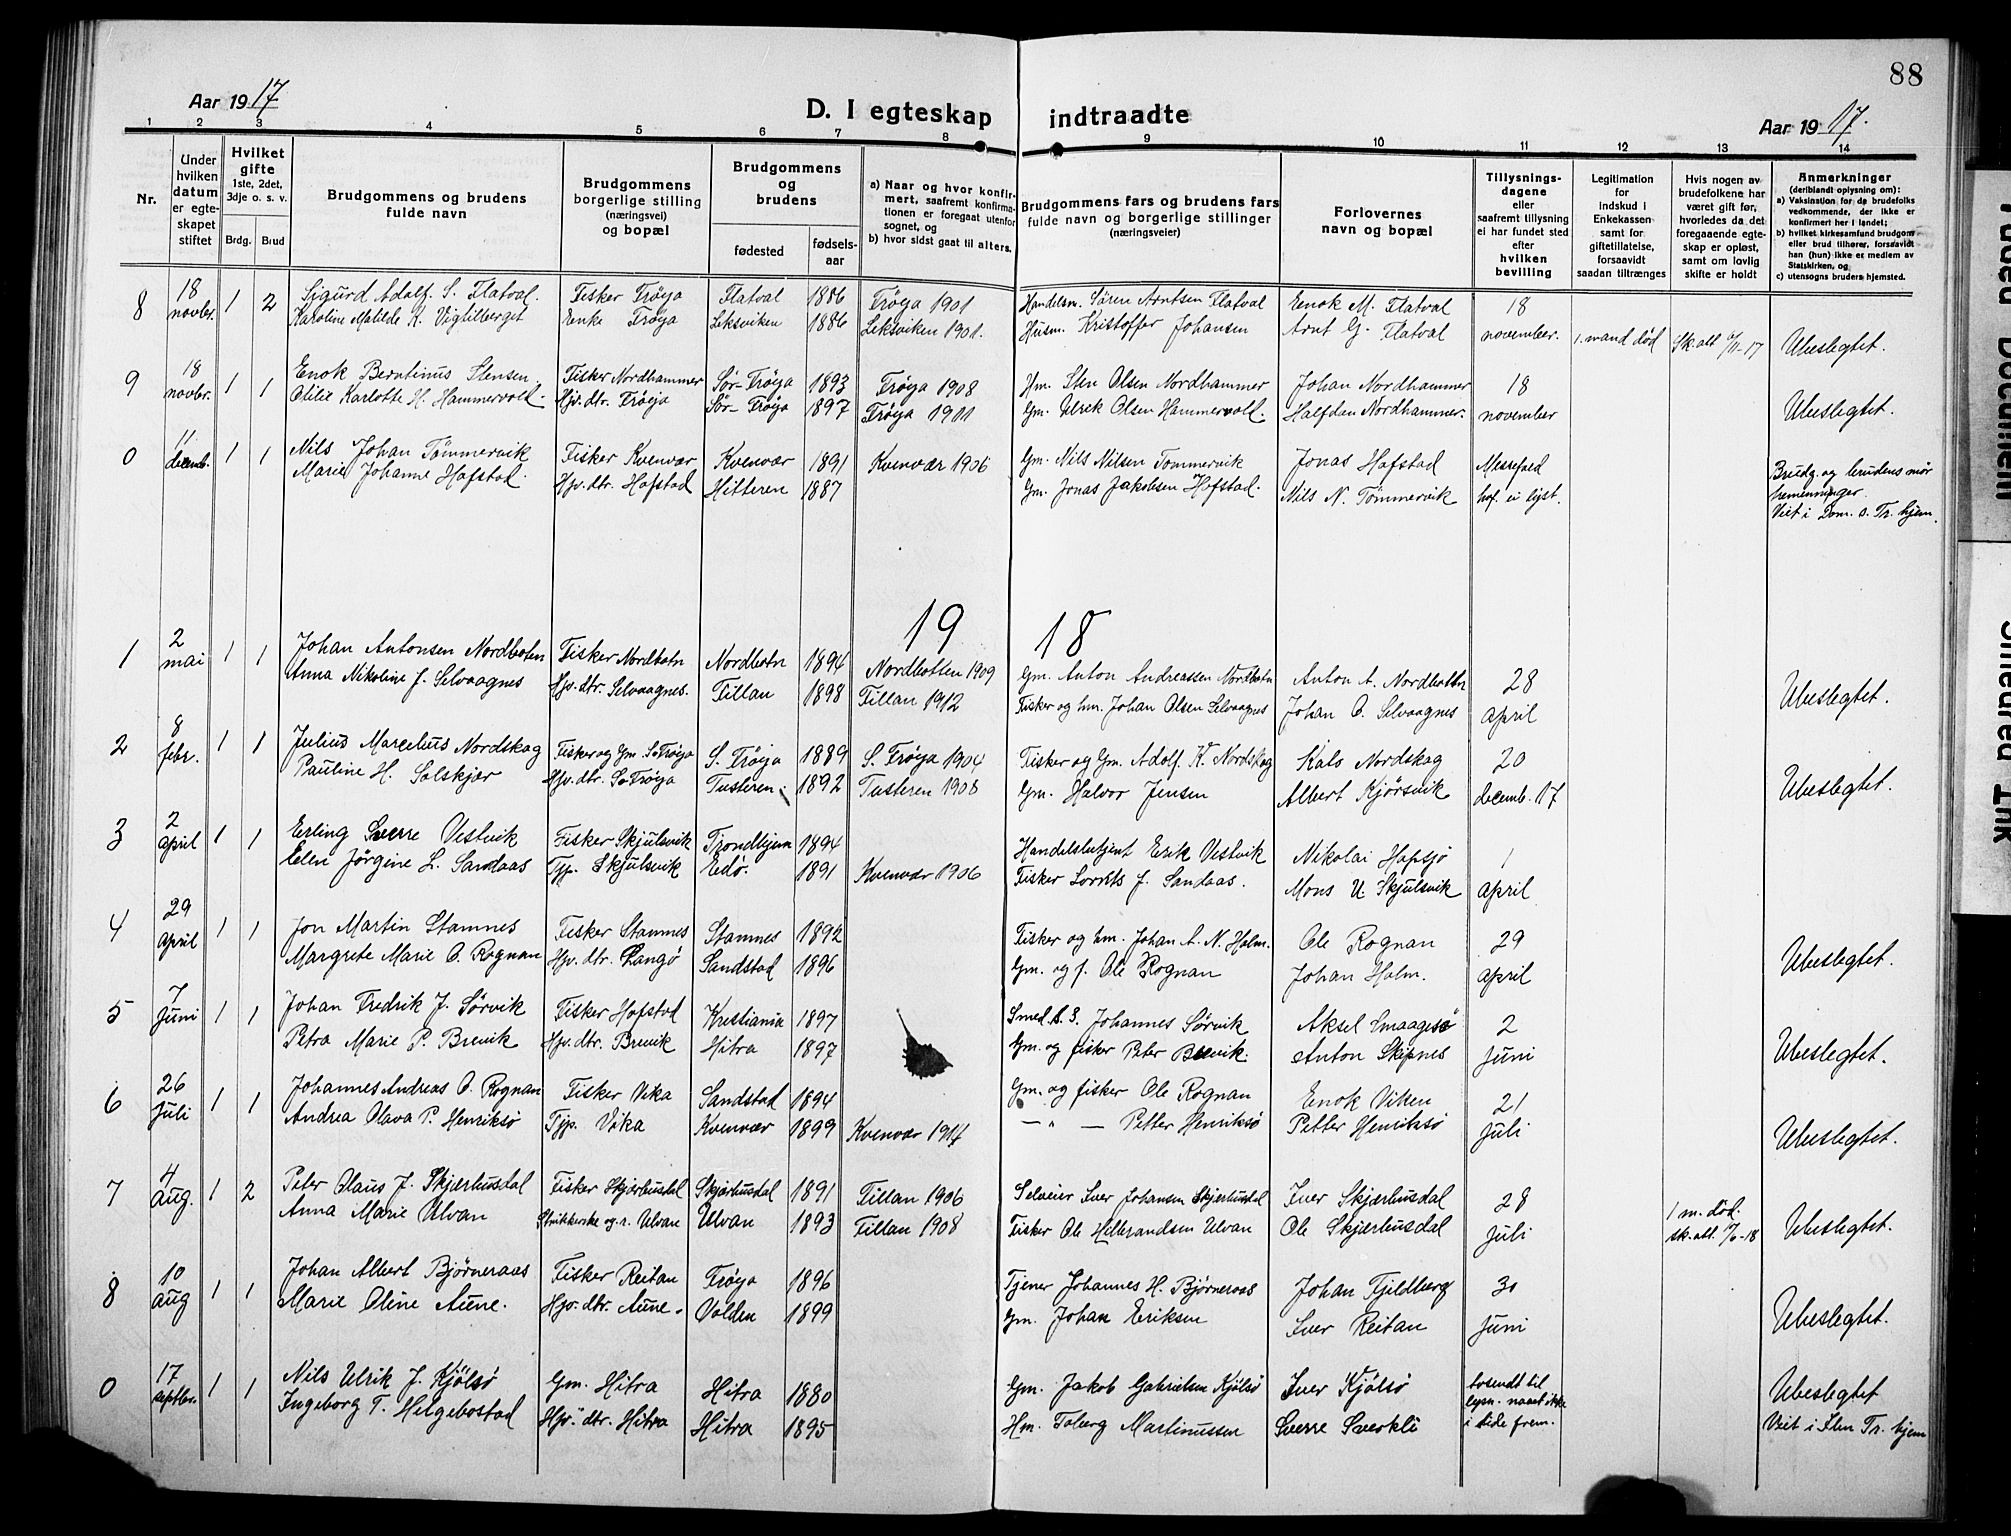 88
Aar 1917
D. I egteskap indtraadte
Aar 1917.
1 2 3 4 5 6 7 8 9 10 11 12 13 14
Nr.
Under hvilken datum er egteskapet stiftet
Hvilket gifte 1ste, 2det, 3dje o. s. v.
Brdg. Brud
Brudgommens og brudens fulde navn
Brudgommens borgerlige stilling (næringsvei) og bopæl
Brudgommens og brudens
fødested fødselsaar
a) Naar og hvor konfirmert, saafremt konfirmationen er foregaat utenfor sognet, og
b) hvor sidst gaat til alters.
Brudgommens fars og brudens fars fulde navn og borgerlige stillinger (næringsveier)
Forlovernes navn og bopæl
Tillysningsdagene eller saafremt tillysning ei har fundet sted efter hvilken bevilling
Legitimation for indskud i Enkekassen samt for giftetillatelse, forsaavidt saadan tiltrænges
Hvis nogen av brudefolkene har været gift før, hvorledes da det foregaaende egteskap er opløst, samt om lovlig skifte er holdt
Anmerkninger (deriblandt oplysning om):
a) Vaksination for de brudefolks vedkommende, der ikke er konfirmert her i landet;
b) hvilket kirkesamfund brudgom eller brud tilhører, forsaavidt han (hun) ikke er medlem av Statskirken, og
c) utensogns bruders hjemsted.
8 18 novbr. 1 2 Sigurd Adolf. S. Flatval. Fisker Frøya Flatval 1886 Frøya 1901 Handelsm. Søren Arntsen Flatval Enok M. Flatval 18
Karoline Matilde K. Vigtilberget Enke Frøya Leksviken 1886 Leksviken 1901. Husm. Kristoffer Johansen Arnt G. Flatval november. 1. mand død Sk. att. 6/11-17 Ubeslegtet.
9 18 novbr. 1 1 Enok Berntinus Stensen Fisker Nordhammer Sør-Frøya 1893 Frøya 1908 Hm. Sten Olsen Nordhammer Johan Nordhammer 18
Otilie Karlotte H. Hammervold. Hjv. dtr. Frøya Sør-Frøya 1897 Frøya 1911 Gm. Ulrik Olsen Hammervold. Halfdan Nordhammer. november Ubeslegtet.
0 11 decemb. 1 1 Nils Johan Tømmervik Fisker Kvenvær Kvenvær 1891 Kvenvær 1906 Gm. Nils Nilsen Tømmervik Jonas Hofstad
Marie Johanne Hofstad. Hjv. dtr. Hofstad Hitteren 1887 Gm. Jonas Jakobsen Hofstad. Nils N. Tømmervik ei lyst. Brudg. og brudens mor
Viet i Dom. s. Tr.hjem.
19 18
1 2 mai 1 1 Johan Antonsen Nordbotn Fisker Nordbotn Nordbotn 1894 Nordbotten 1909 Gm. Anton Andreassen Nordbotn Anton A. Nordbottn 28
Anna Nikoline J. Selvaagnes Hjv. dtr. Selvaagnes. Fillan 1898 Fillan 1912 Fisker og hm. Johan Olsen Selvaagnes Johan O. Selvaagnes April Ubeslegtet.
2 8 febr. 1 1 Julius Marcelius Nordskag Fisker og Gm. S. Frøya S. Frøya 1889 S. Frøya 1904 Fisker og Gm. Adolf K. Nordskag Kals Nordskag 20
Pauline H. Solskjær Hjv. dtr. S. Frøya Tusteren. 1892 Tusteren 1908 Gm. Halvor Jensen Albert Kjørsvik decemb. 17 Ubeslegtet.
3 2 april 1 1 Erling Sverre Vestvik Fisker Skjulsvik Trondhjem 1894 Handelsbetjent Erik Vestvik Nikolai Hopsjø 1
Elen Jørgine L. Sandaas Tjp. Skjulsvik Edø. 1891 Kvenvær 1906 Fisker Lorents J. Sandaas. Mons U. Skjulsvik April
4 29 April 1 1 Jon Martin Stamnes Fisker Stamnes Stamnes 1892 Fisker og hm. Johan A. N. Holm. Ole Rognan 29
Margrete Marie O. Rognan Hjv. dtr. Langø Sandstad 1896 Gm. og f. Ole Rognan Johan Holm. April Ubeslegtet.
5 7 Juni 1 1 Johan Fredrik J. Sørvik Fisker Hofstad Kristiania 1897 Smed. Johannes Sørvik Aksel Smaagesø 2
Petra Marie P. Brevik Hjv. dtr. Brevik Hitra 1897 Gm. og fisker Peter Brevik. Anton Skipnes Juni Ubeslegtet.
6 26 Juli 1 1 Johannes Andreas O. Rognan Fisker Vika Sandstad 1894 Gm. og fisker Ole Rognan Enok Viken 21
Andrea Olava P. Henriksø Tjp. Vika Kvenvær 1899 Kvenvær 1914 — " — Petter Henriksø Petter Henriksø Juli Ubeslegtet.
7 4 Aug. 1 2 Peter Olaus J. Skjærhusdal Fisker Skjærhusdal Skjærhusdal 1891 Fillan 1906 Selveier Iver Johansen Skjærhusdal Iver Skjærhusdal 28
Anna Marie Ulvan Strikkerske og r. Ulvan Ulvan 1893 Fillan 1908 Fisker Ole Hilbrandsen Ulvan Ole Skjærhusdal Juli 1 m. død. sk. att. Ubeslegtet.
8 10 aug 1 1 Johan Albert Bjørneraas Fisker Reitan Frøya 1896 Tjener Johannes H. Bjørneraas Johan Fjeldberg 30
Marie Oline Aune. Hjv. dtr. Aune. Valden 1899 Gm. Johan Eriksen Iver Reitan Juni Ubeslegtet.
0 17 septbr. 1 1 Nils Ulrik J. Kjølsø Gm. Hitra Hitra 1880 Gm. Jakob Gabrielsen Kjølsø Iver Kjølsø Ubeslegtet
Ingeborg T. Helgebostad Hjv. dtr. Hitra Hitra 1895 Hm. Toberg Martinussen Sverre Sverkli i tide frem. Viet i Ilen Tr.hjem